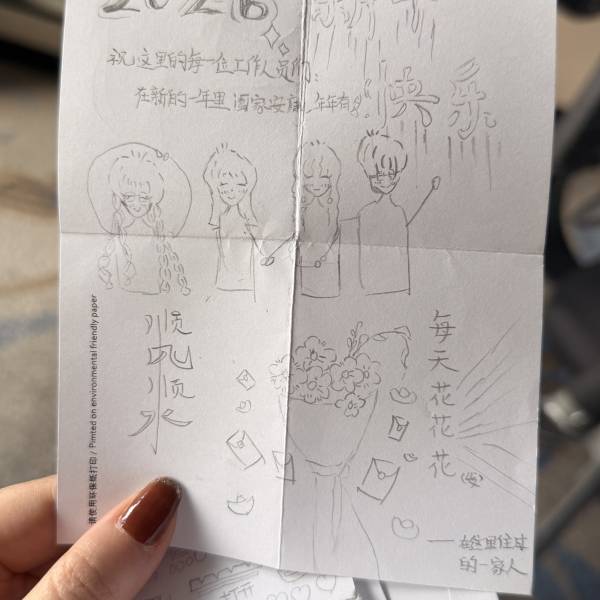 2026
快乐
祝这里的每一位工作人员们:
在新的一年里 阖家安康 年年有
顺
风
顺
水
每
天
花
花
花
——在这里住过
的一家人
请使用环保纸打印 / Printed on environmental friendly paper
打开